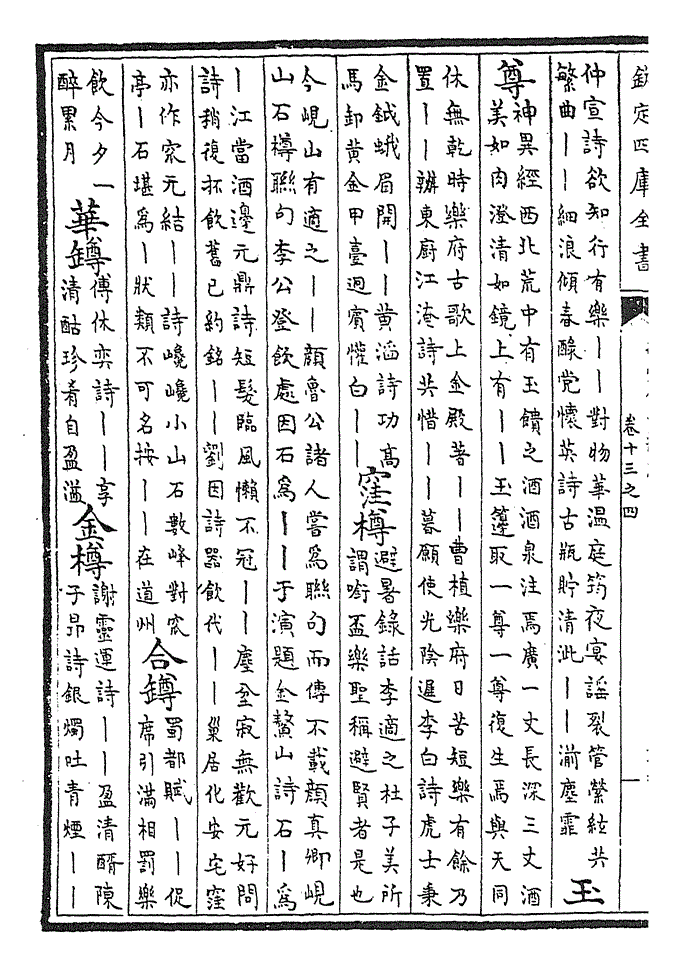 欽定四庫全書
卷十三之四
仲宣詩欲知行有樂丨丨對物華温庭筠夜宴謡裂管縈絃共
繁曲丨丨細浪傾春醁党懷英詩古瓶貯清泚丨丨湔塵霏
玉
尊
神異經西北荒中有玉饋之酒酒泉注焉廣一丈長深三丈酒
美如肉澄清如鏡上有丨丨玉籩取一尊一尊復生焉與天同
休無乾時樂府古歌上金殿著丨丨曹植樂府日苦短樂有餘乃
置丨丨辦東厨江淹詩共惜丨丨暮願使光陰遲李白詩虎士秉
金鉞蛾眉開丨丨黄滔詩功髙
馬卸黄金甲臺迥賓懽白丨丨
窪樽
避暑錄話李適之杜子美所
謂銜盃樂聖稱避賢者是也
今峴山有適之丨丨顔魯公諸人嘗為聯句而傳不載顔真卿峴
山石樽聯句李公登飲處因石為丨丨于演題金鰲山詩石丨為
丨江當酒邊元鼎詩短髮臨風懶不冠丨丨塵坌寂無歡元好問
詩稍復抔飲舊已約銘丨丨劉因詩器飲代丨丨巢居化安宅窪
亦作窊元結丨丨詩巉巉小山石數峰對窊
亭丨石堪為丨狀類不可名按丨丨在道州
合罇
蜀都賦丨丨促
席引滿相罰樂
飲今夕一
醉累月
華罇
傅休奕詩丨丨享
清酤珍肴自盈溢
金樽
謝靈運詩丨丨盈清醑陳
子昻詩銀燭吐青煙丨丨